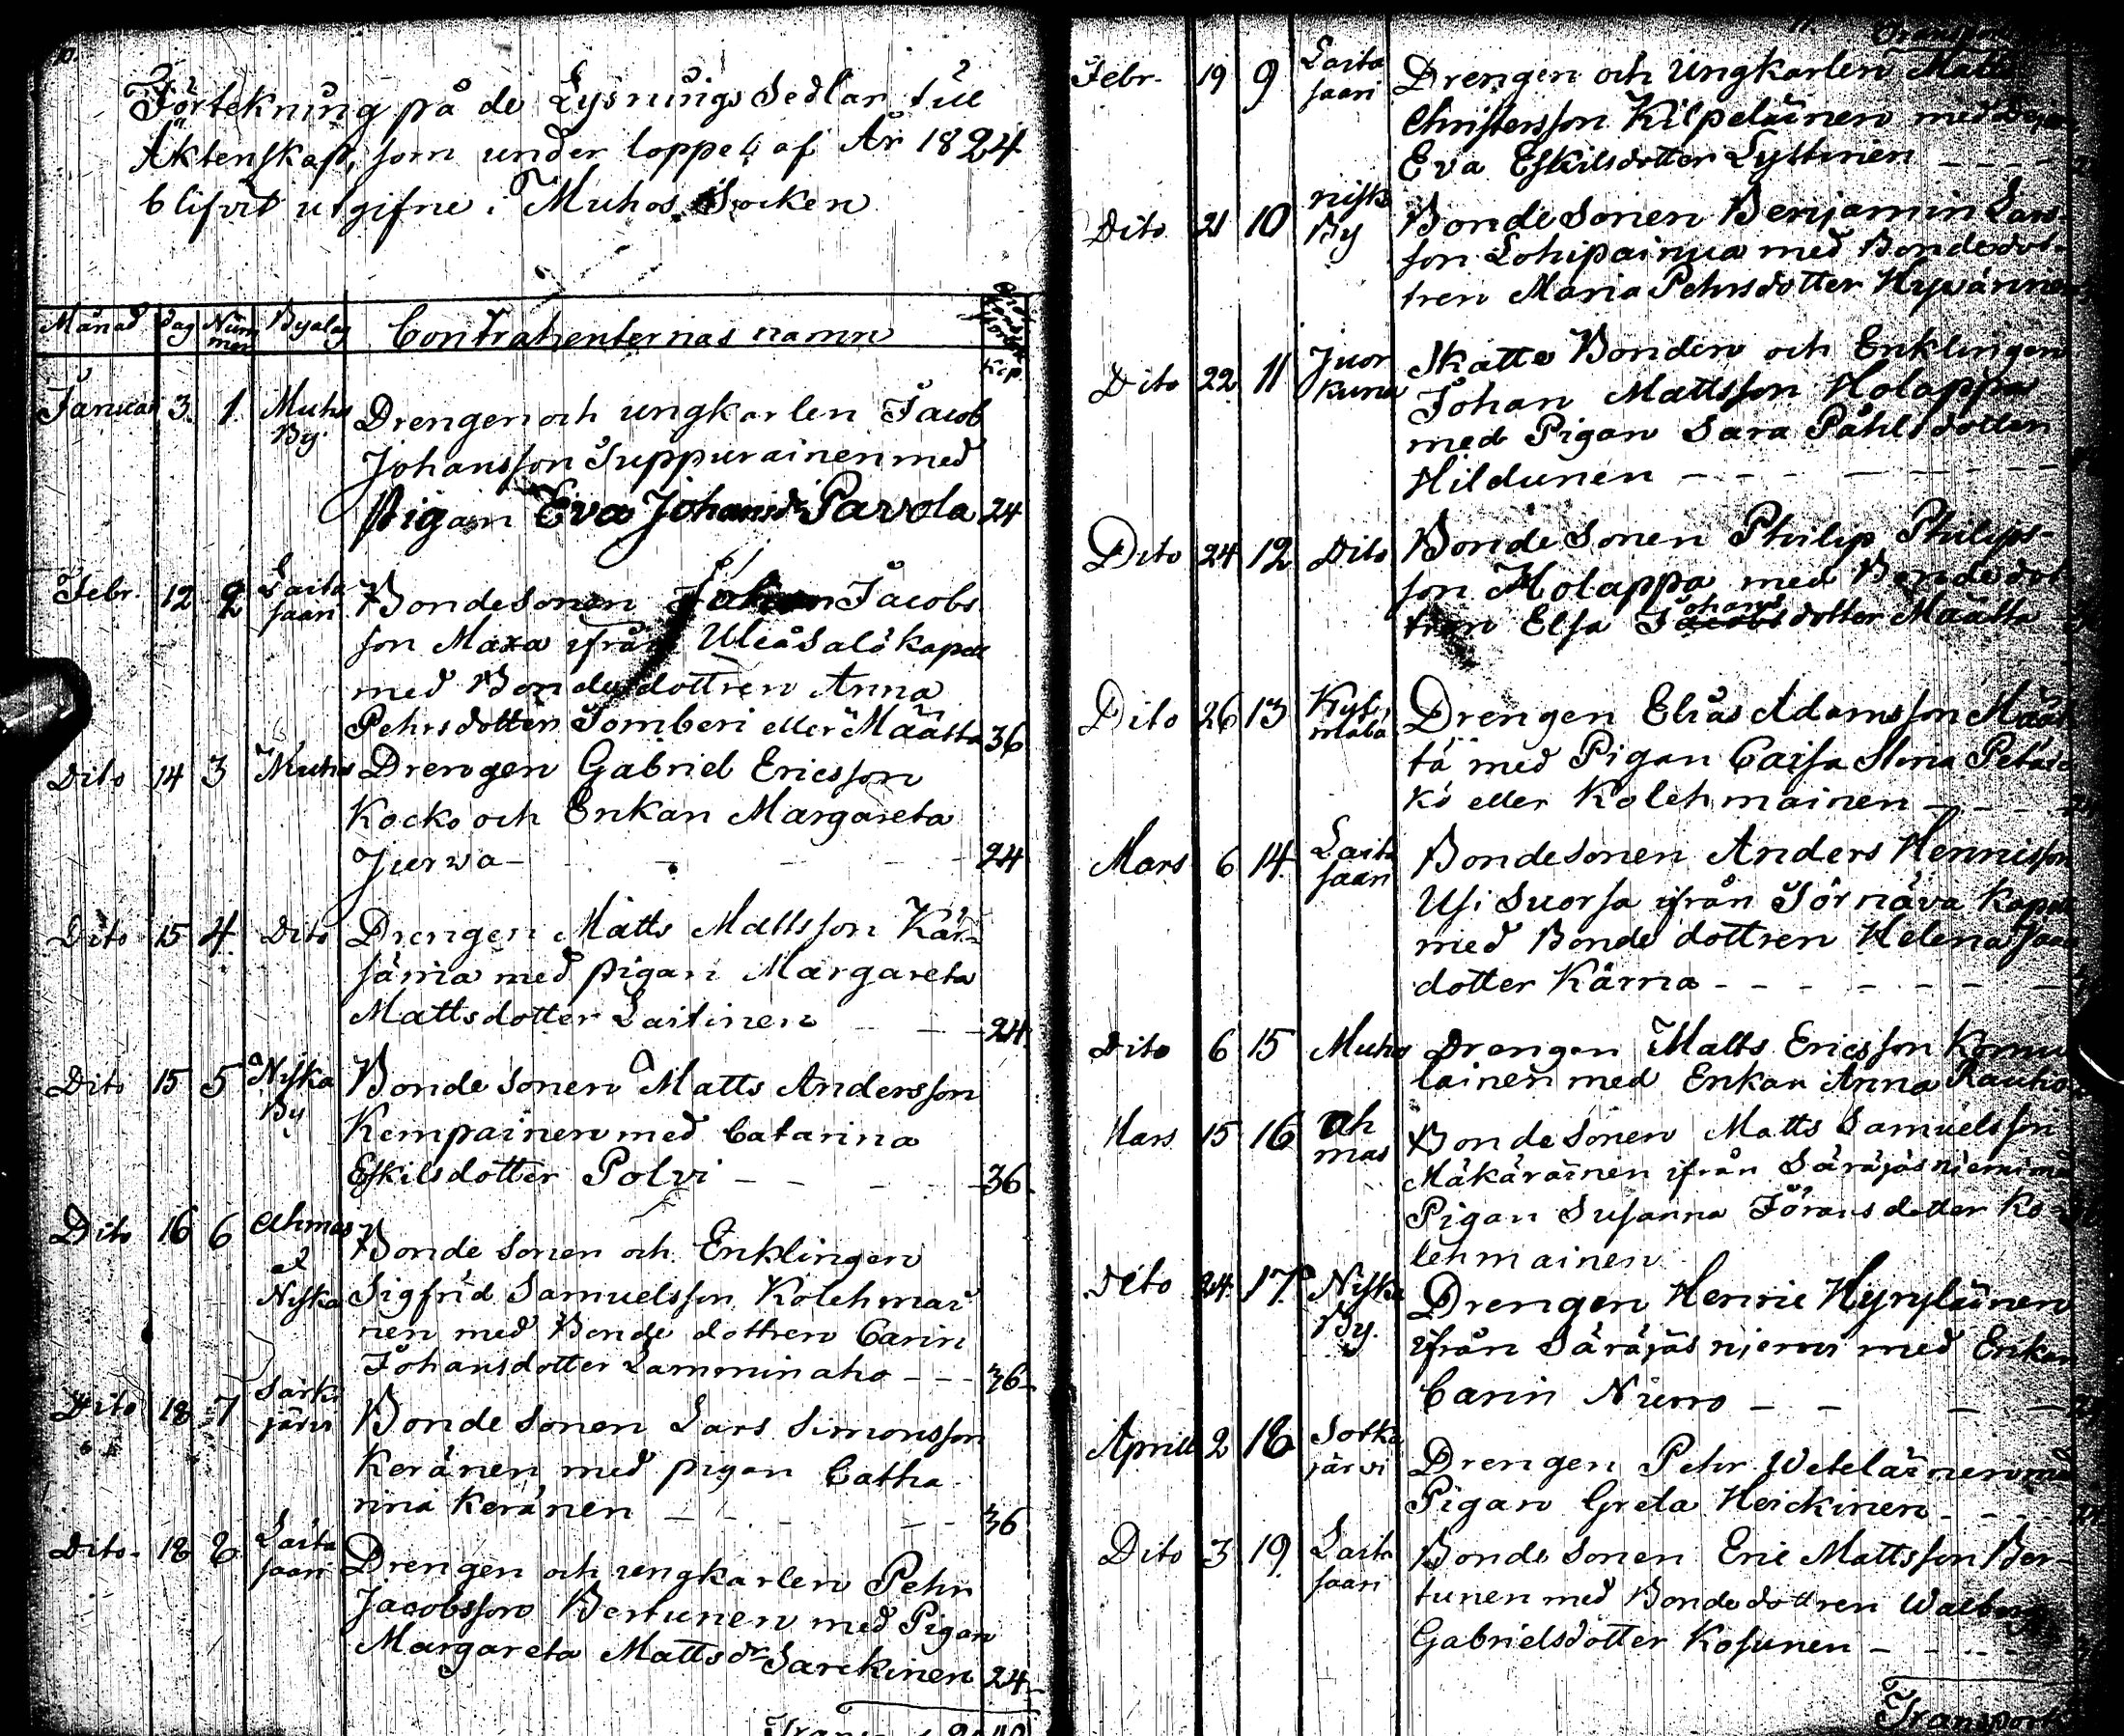 Förtekning på de Lysnings Sedlar till
Äktenskap, som under loppet af År 1824
blifvit utgifne i Muhos Socken
Månad Dag Num Byalag Contrahenternas namn
mer
Kop.
Januari 3. 1. Muhos Drengen och ungkarlen Jacob
By. Johansson Suppurainen med
Pigan Eva Johansdr Pavola 24
Febr. 12 2 Laita Bondesonen Johan Jacobs
saari son Maxa ifrån Uleåsalö kapell
med Bondedottren Anna
Pehrsdotter Tomberi eller Määtta 36
Dito 14 3 Muhos Drengen Gabriel Ericsson
Kocko och Enkan Margareta
Jurva - - - - 24
Dito 15 4. Dito Drengen Matts Mattsson Kär-
särna med pigan Margareta
Mattsdotter Laitinen - - 24.
Dito 15 5 Niska Bonde sonen Matts Andersson
By Kempainen med Catarina
Eskilsdotter Polvi - - - - 36.
Dito 16 6 Ahmas Bonde sonen och Enklingen
&
Niska Sigfrid Samuelsson Kolehmai
nen med Bonde dottren Carin
Johansdotter Lamminaho - - - 36
Dito 18 7 Särki
järvi Bonde sonen Lars Simonsson
Keränen med pigan Catha
rina Keränen - - - - 36
Dito. 18 8 Laita
saari Drengen och ungkarlen Pehr
Jacobsson Bertunen med Pigan
Margareta Matts dr Sarckinen 24
11.
Febr. 19 9 Laita Drengen och Ungkarlen Matts
saari Christersson Kilpeläinen med
Eva Eskilsdotter Lyttinen - - -
Dito 21 10 niska
By Bonde sonen Benjamin Lars-
son Lohipainua med Bondedot-
tren Maria Pehrsdotter Hyvärinen
Dito 22 11 Juor
kuna Skatte Bonden och Enklingen
Johan Mattsson Holappa
med Pigan Sara Påhls dotter
Hildunen - - - - - -
Dito 24 12 Dito Bonde Sonen Philip Philips-
son Holappa med Bondedot
tren Elsa Johans dotter Määtta
Dito 26 13 Kyl-
mälä Drengen Elias Adamsson Määt
tä med Pigan Caisa Stina Petäis
kö eller Kolehmainen - - -
Mars 6 14. Laita
saari Bondesonen Anders Hennisson
Usi Suorsa ifrån Törnävä Kapell
med Bonde dottren Helena
dotter Kärna - - - - - -
Dito 6 15 Muhos Drengen Matts Ericsson Kornu
lainen med Enkan Anna Rauhio
Mars 15 16 Ah
mas Bonde Sonen Matts Samuelsson
Mäkäräinen ifrån Säräjäsniemi med
Pigan Susanna Jörans dotter Ko
lehmainen
Dito 24. 17. Niska
By. Drengen Henric Hyryläinen
ifrån Säräjäs niemi med Enkan
Carin Niemo - - - -
Aprill 2 18 Sotka
järvi Drengen Pehr Weteläinen med
Pigan Greta Heickinen - - -
Dito 3 19. Laita
saari Bonde sonen Eric Mattsson Ber-
tunen med Bondedottren Walborg
Gabrielsdotter Kosunen - - - -
Transport